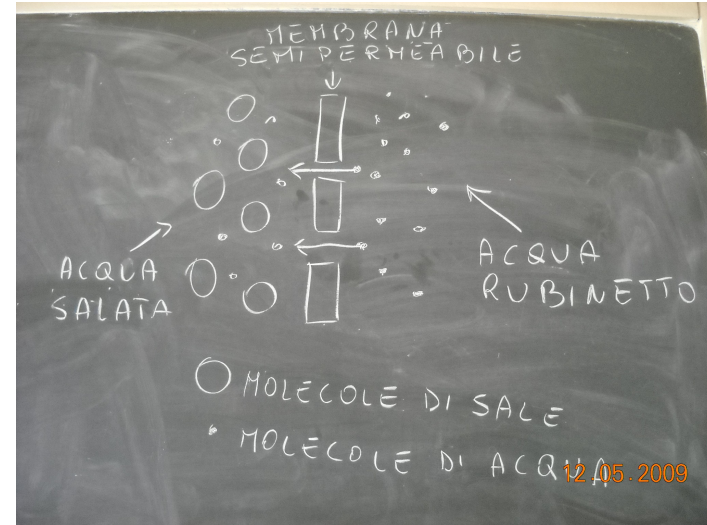 MEMBRANA
SEMIPERMEABILE
ACQUA
SALATA
ACQUA
RUBINETTO
MOLECOLE DI SALE
MOLECOLE DI ACQUA
12.05.2009